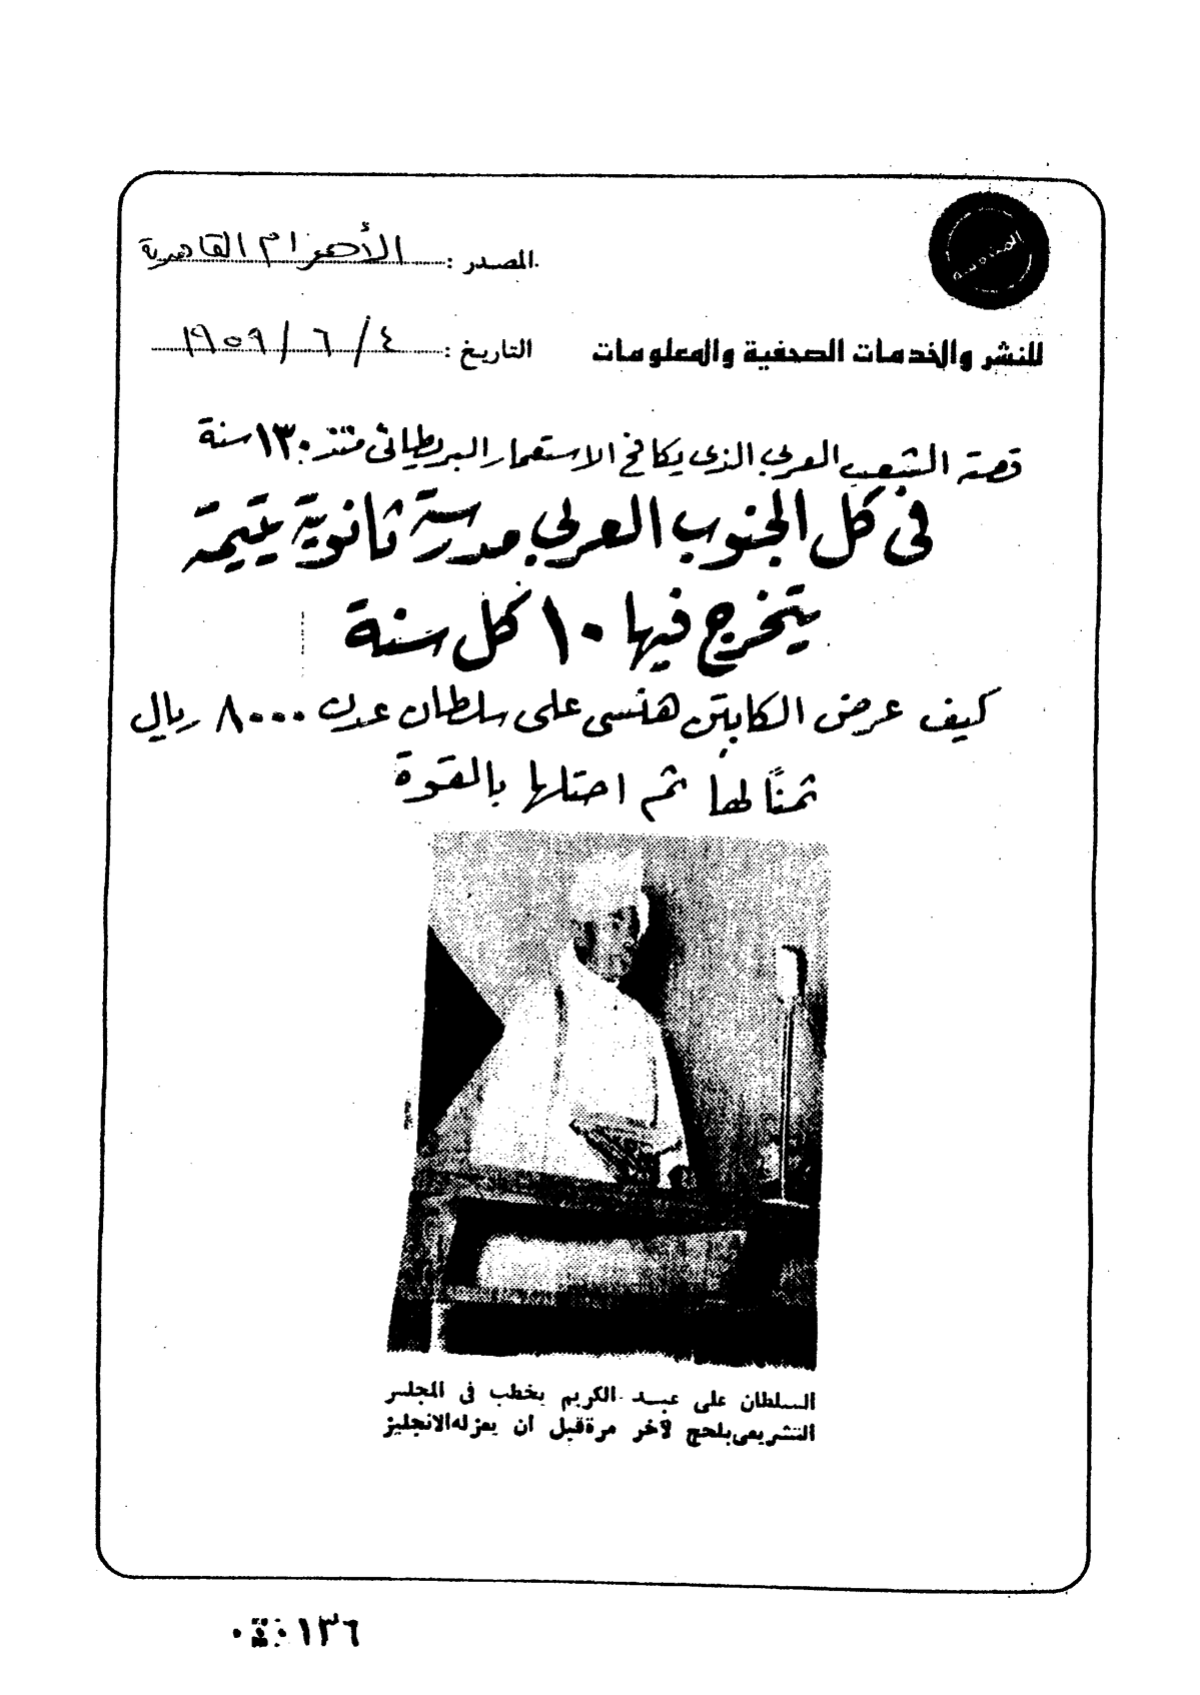 المصدر : الأهرام القاهرية
للنشر والخدمات الصحفية والمعلومات
التاريخ : ٤ / ٦ / ١٩٥٩
قصة الشعب العربي الذي يكافح الاستعمار البريطاني منذ ١٣٠ سنة
في كل الجنوب العربي مدرسة ثانوية يتيمة
يتخرج فيها ١٠ كل سنة
كيف عرض الكابتن هنسي على سلطان عدن ٨٠٠٠ ريال
ثمنًا لها ثم احتلها بالقوة
السلطان على عبد الكريم يخطب فى المجلس
التشريعى بلحج لآخر مرة قبل ان يعزله الانجليز